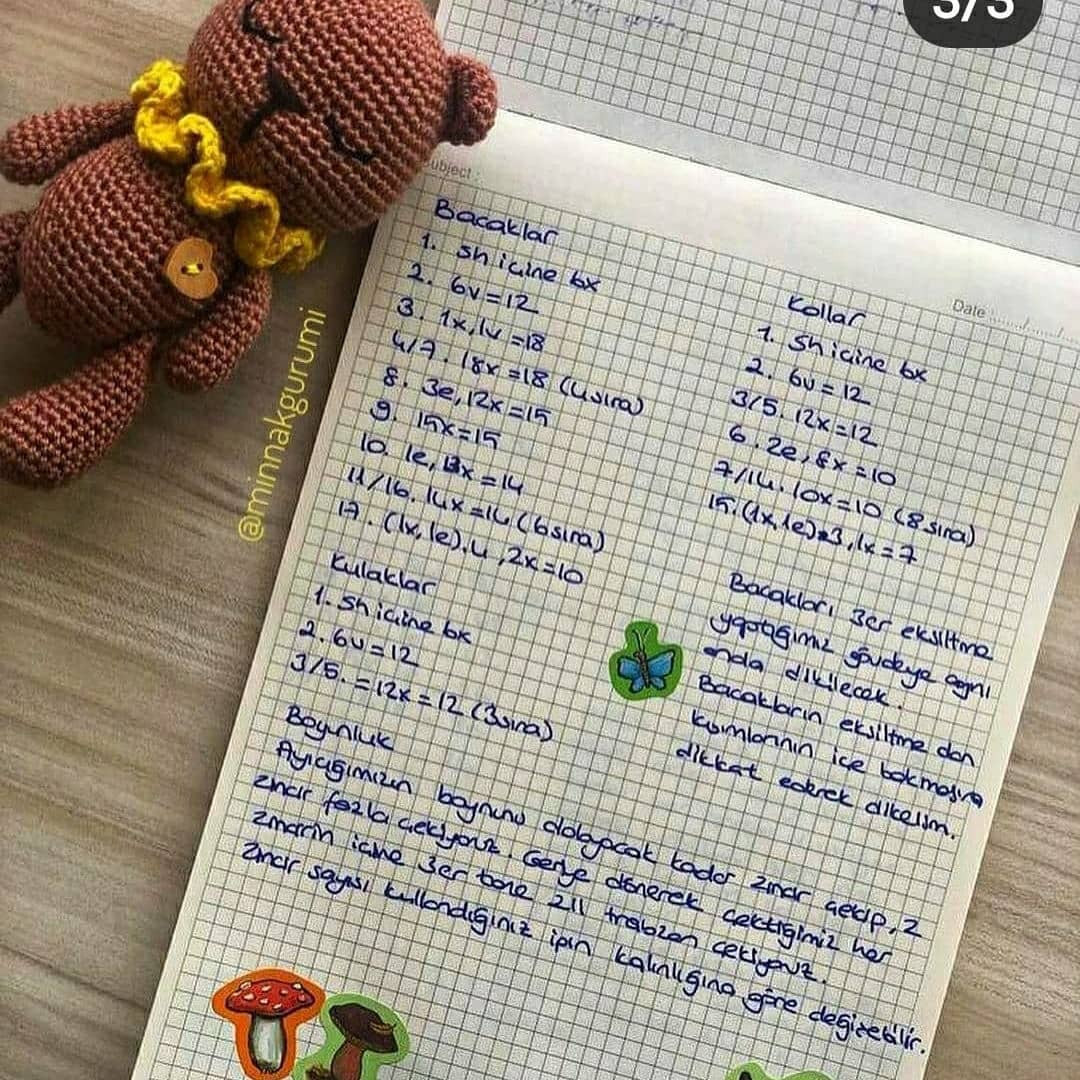 3/3
Subject :
Date ....../....../
@minnakgurumi
Bacaklar
1. sh içine 6x
2. 6v=12
3. 1x,1v=18
4/7. 18x=18 (4 sıra)
8. 3e,12x=15
9. 15x=15
10. 1e, 13x=14
11/16. 14x=14 (6 sıra)
17. (1x,1e).4,2x=10
Kulaklar
1. sh içine 6x
2. 6v=12
3/5. =12x=12 (3 sıra)
Kollar
1. sh içine 6x
2. 6v=12
3/5. 12x=12
6. 2e,8x=10
7/14. 10x=10 (8 sıra)
15. (1x,1e)*3,1x=7
Bacakları 3er eksiltme
yaptığımız gövdeye aynı
anda dikilecek.
Bacakların eksiltme olan
kısımlarının içe bakmasına
dikkat ederek dikelim.
Boyunluk
Ayıcığımızın boynunu dolayacak kadar zincir çekip, 2
zincir fazla çekiyoruz. Geriye dönerek çektiğimiz her
zincirin içine 3er tane 2li trabzan çekiyoruz.
Zincir sayısı kullandığınız ipin kalınlığına göre değişebilir.